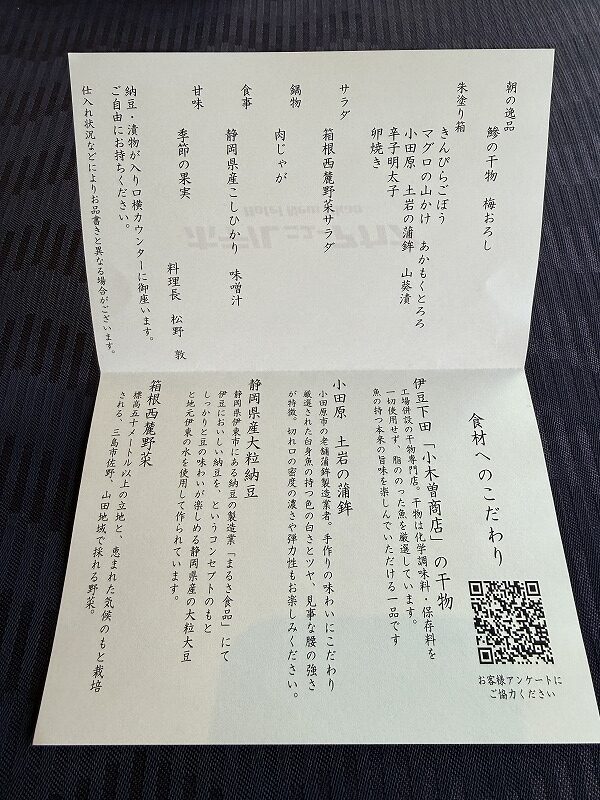 朝の逸品
鯵の干物　梅おろし
朱塗り箱
きんぴらごぼう
マグロの山かけ　あかもくとろろ
小田原　土岩の蒲鉾　山葵漬
辛子明太子
卵焼き
サラダ
箱根西麓野菜サラダ
鍋物
肉じゃが
食事
静岡県産こしひかり　味噌汁
甘味
季節の果実
料理長　松野　敦
納豆・漬物が入り口横カウンターに御座います。
ご自由にお持ちください。
仕入れ状況などによりお品書きと異なる場合がございます。
食材へのこだわり
お客様アンケートに
ご協力ください
伊豆下田「小木曽商店」の干物
工場併設の干物専門店。干物は化学調味料・保存料を
一切使用せず、脂ののった魚を厳選しています。
魚の持つ本来の旨味を楽しんでいただける一品です
小田原　土岩の蒲鉾
小田原市の老舗蒲鉾製造業者。手作りの味わいにこだわり
厳選された白身魚の持つ色の白さとツヤ、見事な腰の強さ
が特徴。切れ口の密度の濃さや弾力性もお楽しみください。
静岡県産大粒納豆
静岡県伊東市にある納豆の製造業「まるさ食品」にて
伊豆においしい納豆を、というコンセプトのもと
しっかりと豆の味わいが楽しめる静岡県産の大粒大豆
と地元伊東の水を使用して作られています。
箱根西麓野菜
標高五十メートル以上の立地と、恵まれた気候のもと栽培
される、三島市佐野、山田地域で採れる野菜。